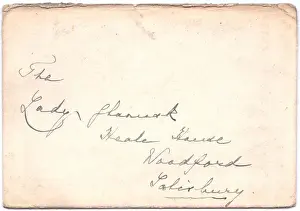 The
Lady Glanusk
Heale House
Woodford
Salisbury.